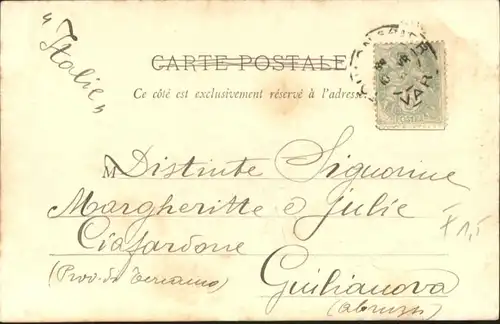 "Italie"
CARTE POSTALE
Ce côté est exclusivement réservé à l'adresse
VAR
POSTES
M Distinte Signorine
Margheritte e Julie
Ciafardone
(Prov. di Teramo) Giulianova
(Abruzzi)